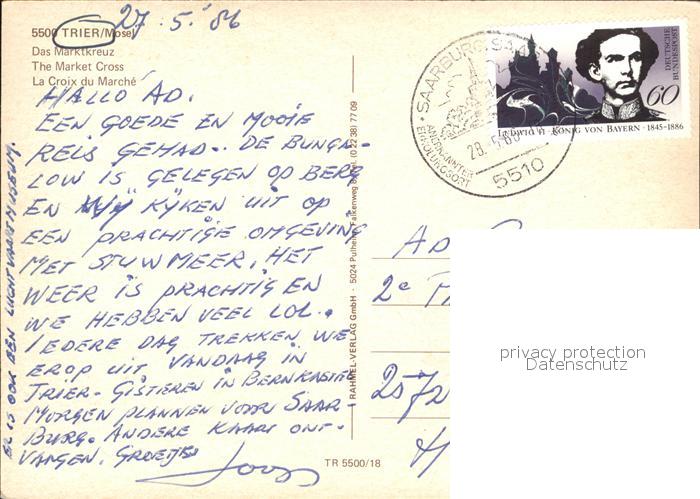 27.5.86
5500 TRIER/Mosel
Das Marktkreuz
The Market Cross
La Croix du Marché
HALLO AD.
EEN GOEDE EN MOOIE
REIS GEHAD. DE BUNGA-
LOW IS GELEGEN OP BERG
EN WIJ KIJKEN UIT OP
EEN PRACHTIGE OMGEVING
MET STUWMEER. HET
WEER IS PRACHTIG EN
WE HEBBEN VEEL LOL.
IEDERE DAG TREKKEN WE
EROP UIT. VANDAAG IN
TRIER. GISTEREN IN BERNKASTEL
MORGEN PLANNEN VOOR SAAR-
BURG. ANDERE KAART ONT-
VANGEN. GROETJES
Joop
ER IS OOK EEN LUCHTVAARTMUSEUM.
RAHMEL-VERLAG GmbH · 5024 Pulheim · Falkenweg (0 22 38) 77 09
TR 5500/18
SAARBURG, SAAR
ANERKANNTER
ERHOLUNGSORT
28.5.86
5510
DEUTSCHE
BUNDESPOST
60
LUDWIG II · KÖNIG VON BAYERN · 1845-1886
AD
2e
2572
privacy protection
Datenschutz